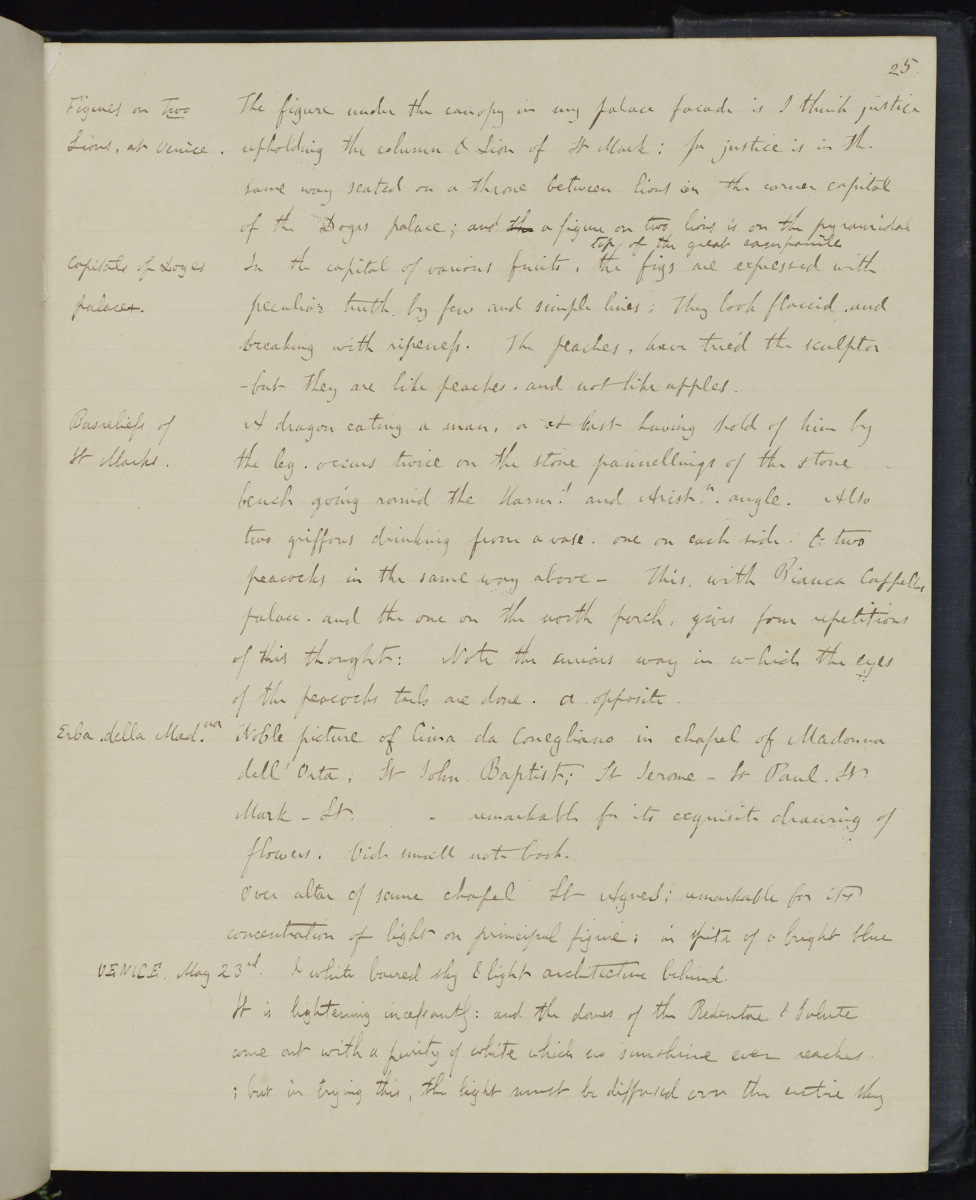 25.
Figures on Two
Lions, at Venice.
The figure under the canopy in my palace facade is I think justice
upholding the column & Lion of St Mark: for justice is in the
same way seated on a throne between lions on the corner capital
of the Doges palace; and the a figure on two lions is on the pyramidal
top of the great campanile
Capitals of Doges
palace.
In the capital of various fruits, the figs are expressed with
peculiar truth, by few and simple lines; They look flaccid, and
breaking with ripeness. The peaches, have tried the sculptor
-but they are like peaches, and not like apples.
Basreliefs of
St Marks.
A dragon eating a man, or at least having hold of him by
the leg, occurs twice on the stone pannellings of the stone
bench going round the and angle. Also
two griffons drinking from a vase, one on each side. & two
peacocks in the same way above - This, with Bianca Cappellos
palace, and the one on the north porch, gives four repetitions
of this thought: Note the curious way in which the eyes
of the peacocks tails are done. a opposite.
Erba della Mad.na
Noble picture of Cima da Conegliano in chapel of Madonna
dell' Orta; St John Baptist; St Jerome - St Paul. St
Mark - St. - remarkable for its exquisite drawing of
flowers. Vide small note book.
Over altar of same chapel St Agnes; remarkable for its
concentration of light on principal figure; in spite of a bright blue
& white barred sky & light architecture behind
VENICE. May 23rd.
It is lightening incessantly: and the domes of the Redentore & Salute
come out with a purity of white which no sunshine ever reaches.
; but in trying this, the light must be diffused over the entire sky